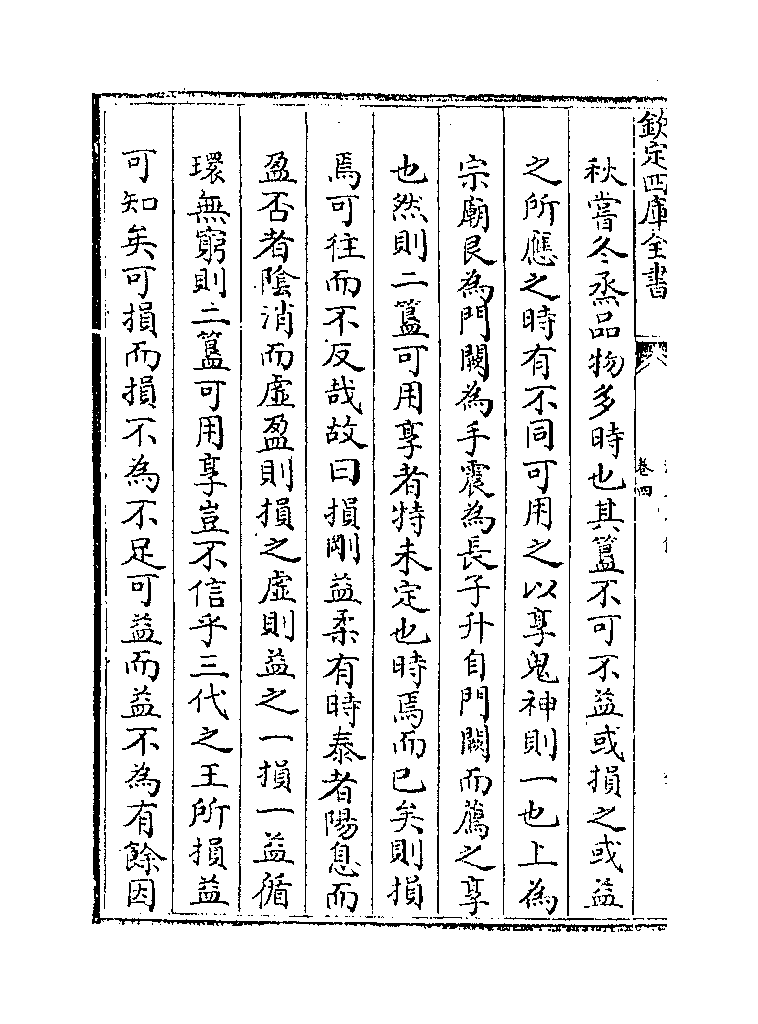 欽定四庫全書
卷四
秋嘗冬烝品物多時也其簋不可不益或損之或益
之所應之時有不同可用之以享鬼神則一也上為
宗廟艮為門闕為手震為長子升自門闕而薦之享
也然則二簋可用享者特未定也時焉而已矣則損
焉可往而不反哉故曰損剛益柔有時泰者陽息而
盈否者陰消而虛盈則損之虛則益之一損一益循
環無窮則二簋可用享豈不信乎三代之王所損益
可知矣可損而損不為不足可益而益不為有餘因